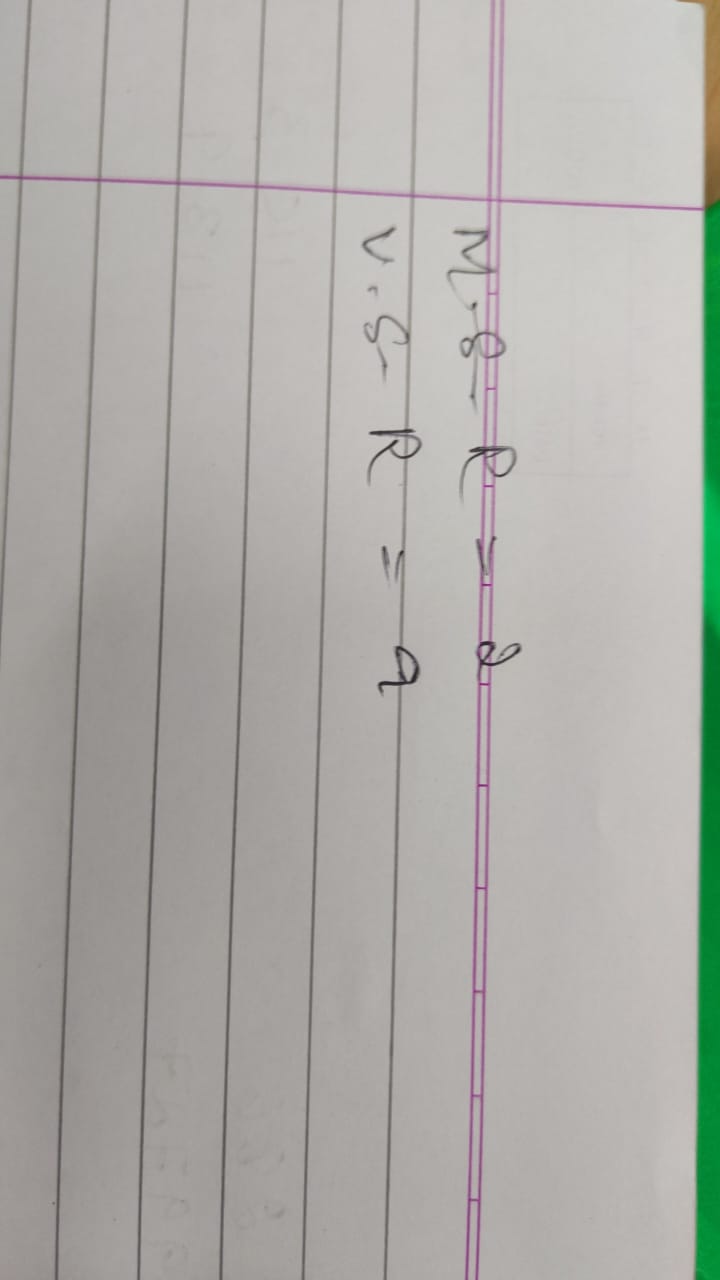 M.S-R =
V.S-R = 9